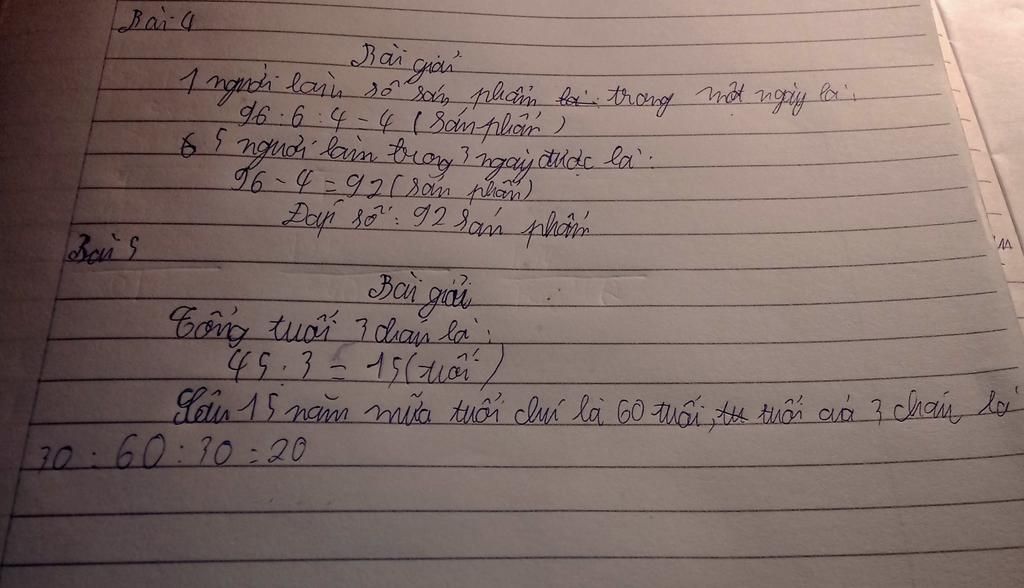 Bài 4
Bài giải
1 người làm số sản phẩm trong một ngày là:
96 : 6 : 4 = 4 (sản phẩm)
5 người làm trong 3 ngày được là:
96 - 4 = 92 (sản phẩm)
Đáp số: 92 sản phẩm
Bài 5
Bài giải
Tổng tuổi 3 cháu là:
45 : 3 = 15 (tuổi)
Sau 15 năm nữa tuổi chú là 60 tuổi, tuổi củả 3 cháu là
30 : 60 : 30 = 20